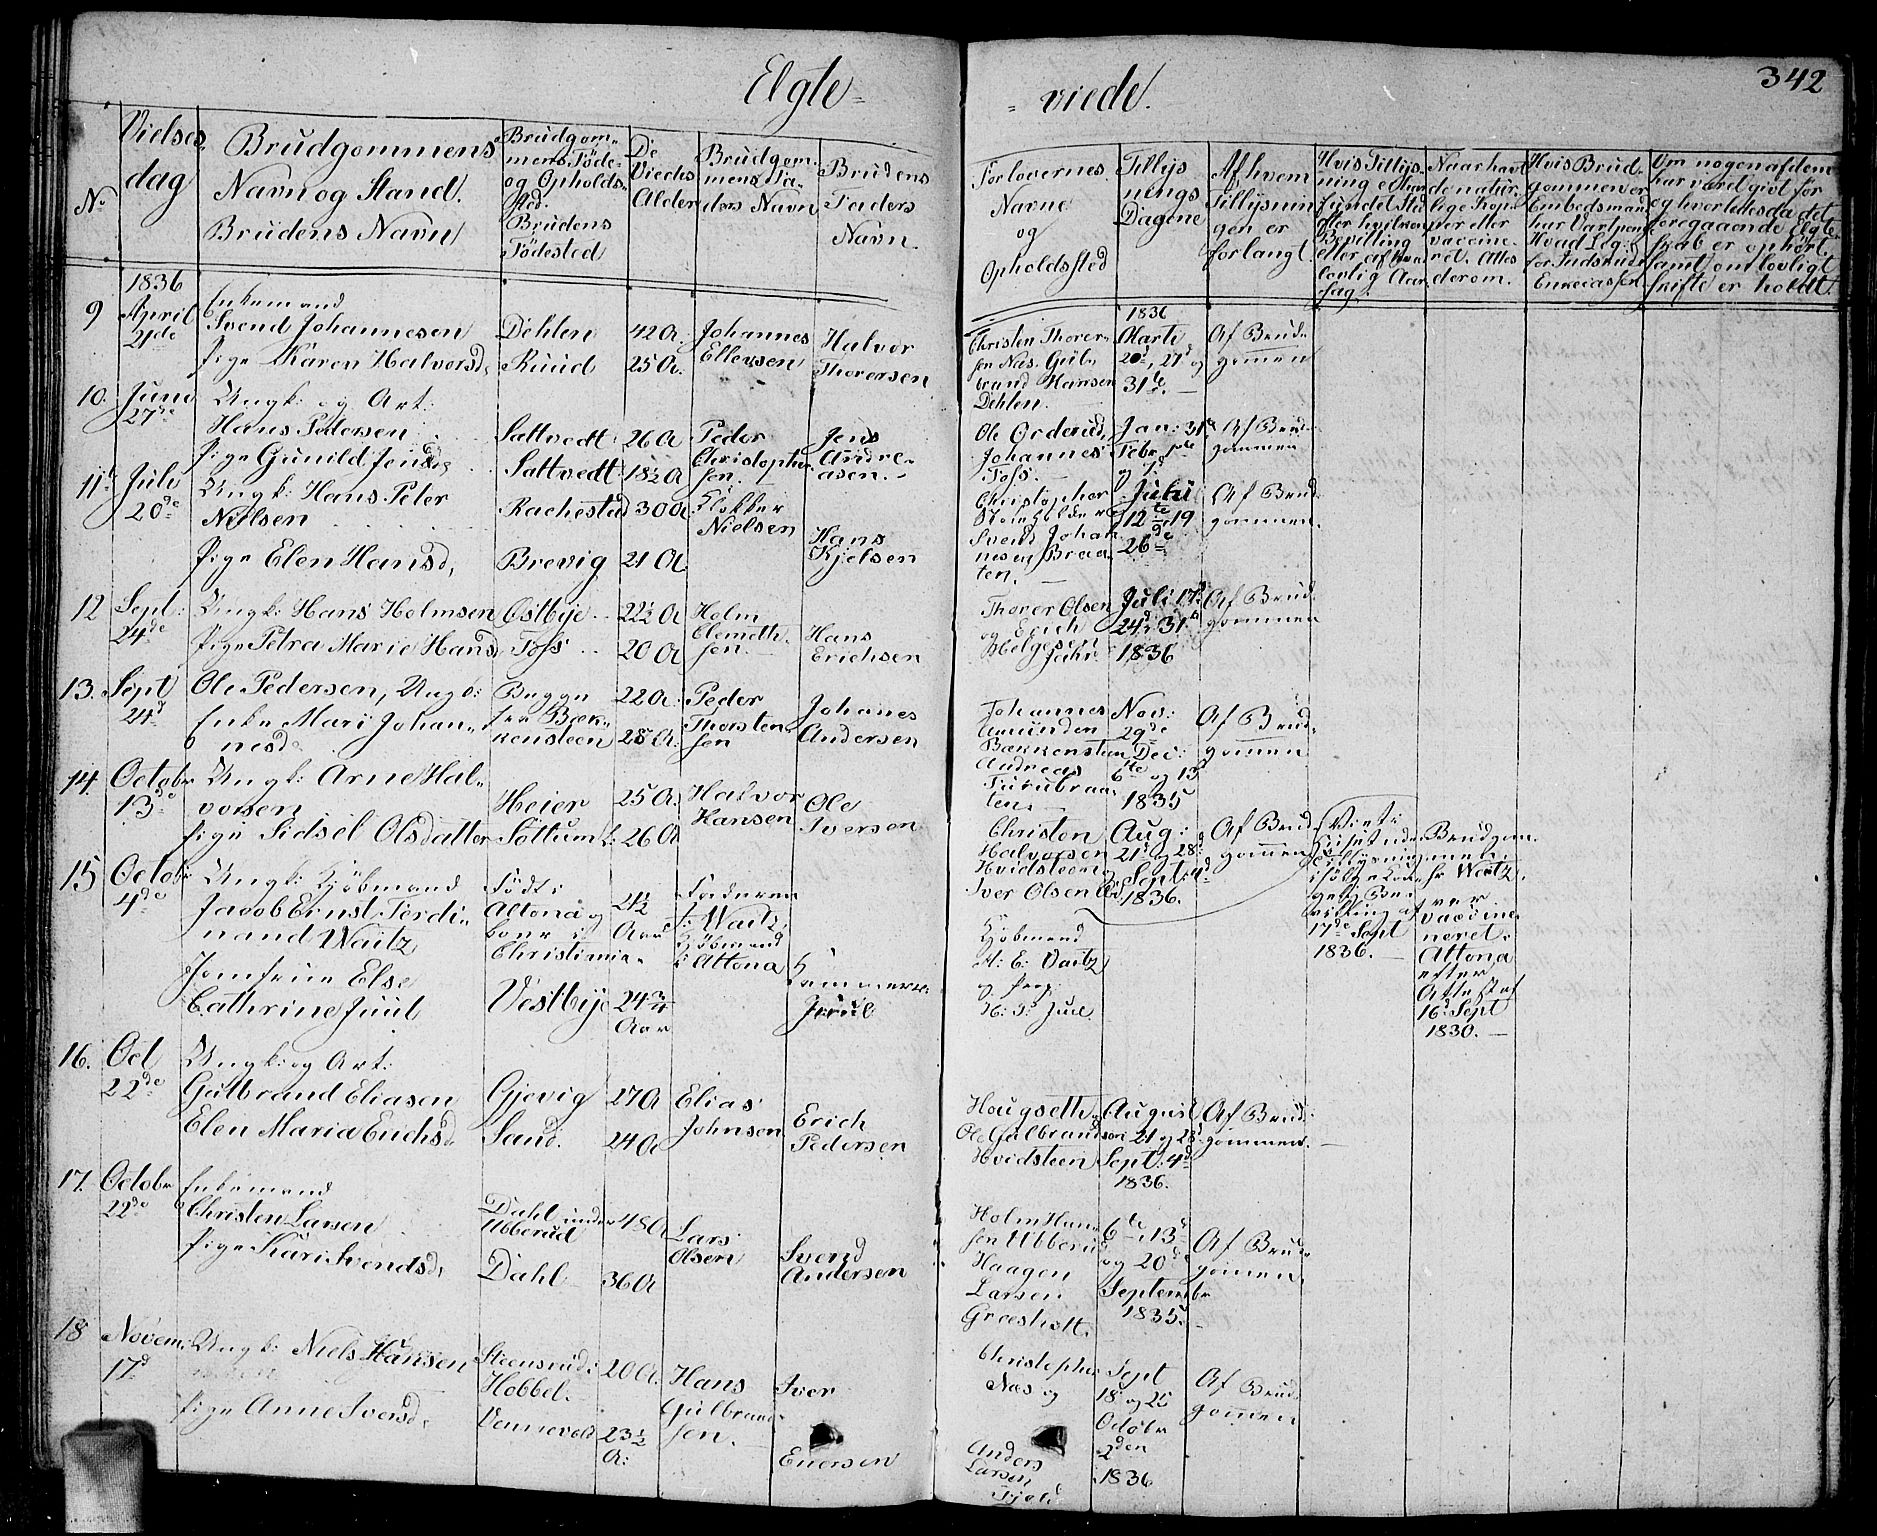 Elgte=
= viede.
342
No
Vielses
dag
Brudgommens
Navn og Stand.
Brudens Navn
Brudgom=
mens Føde=
og Opholds=
sted.
Brudens
Fødested
De
Viedes
Alder
Brudgom=
mens Fa=
ders Navn
Brudens
Faders
Navn.
Forlovernes
Navne
og
Opholdssted
Tillys
nings
Dagene
Af hvem
Tillysnin
gen er
forlangt.
Hvis Tillys=
ning ei har
fundet Sted
efter hvilken
Bevilling
eller af hvad
lovlig Aar
sag.
Naar havt
de natur=
lige Kop=
per eller
vaccine=
ret. Attes
derom.
Hvis Brud=
gommen er
Embedsmand
har Vartpenge
Hvad Leg:
for Indskud i
Enkecassen
Om nogen af dem
har været givt før
og hvorledes da det
foregaaende Ægte=
skab er ophørt
samt om lovligt
skifte er holdt.
1836
9
April
21de
Enkemand
Svend Johannesen
Pige Karen Halvorsd.
Dehlen
Ruud
42 A.
25 A.
Johannes
Ellevsen
Halvor
Thorersen
Christen Thorer=
sen Næs. Gul=
brand Hansen
Dehlen.
1836
Marts
20d, 27d og
31te
Af Brud=
gommen
10.
Juni
27de
Ungk: og Art:
Hans Pedersen
Pige Gunild Jensd.
Sattvedt
Sattvedt
26 A
18½ A
Peder
Christopher
sen.
Jens
Andre=
asen.
Ole Orderud,
Johannes
Foss.
Jan: 31te
Febr. 1ste
og 7d
Af Brud=
gommen
11d
Juli
20de
Ungk: Hans Peter
Nielsen
Pige Elen Hansd,
Rachestad
Brevig
30 A.
21 A
Klokker
Nielsen
Hans
Kjelsen
Christopher
Svend Johan
nesen Braa=
ten.
Juli
12te, 19
26de
Af Brud=
gommen.
12
Sept:
24de
Ungk: Hans Holmsen
Pige Petra Marie Hansd
Østbye
Foss
22½ A
20 A
Holm
Clemeth=
sen
Hans
Erichsen
Thorer Olsen
og Erich
Helgesen
Juli 17d
24d, 31te
1836
Af Brud
gommen
13.
Sept
24d
Ole Pedersen, Ungk:
Enke Mari Johan=
nesd
Begge
fra Bæk=
kensteen
22 A.
28 A.
Peder
Thorsten=
sen
Johanes
Andersen
Johannes
Amunden
Bækkensteen
Andreas
Furubraa=
ten.
Nov:
29de
Dec:
6te og 13
1835
Af Brud=
gomen
14.
Octobr
13de
Ungk: Arne Hal=
vorsen
Pige Sidsel Olsdatter
Heier
Søttum
25 A.
26 A
Halvor
Hansen
Ole
Iversen
Christen
Halvorsen
Hvidsteen og
Iver Olsen
Aug:
21d og 28d
Sept: 4d
1836.
Af Brud=
gommen
15
Octob:
4de
Ungk: Kjøbmand
Jacob Ernst Ferdi=
nand Waitz
Jomfrue Else
Cathrine Juul
Født i
Altona og
boer i
Christiania
Vestbye
21½
Aar
24¾
Aar
Faderen
Waitz,
Kjøbmand
i Altona
Kammerr.
Juul
Kjøbmand
H: E: Vaitz
og
H: J: Juul
Viet i
Huset uden
Tillysning
ifølge
Bevilling af
17de Sept
1836.
Brudgom=
men
Hr Waitz,
er
vaccine=
neret i
Altona
efter
Attest af
16d Sept
1830.
16.
Oct
22de
Ungk: og Art:
Gulbrand Eliasen
Elen Maria Erichsd
Gjevig
Sand.
27 A
24 A
Elias
Johnsen
Erich
Pedersen
Haugseth og
Ole Gulbrandsen
Hvidsteen
August
21 og 28d
Sept: 4d
1836.
Af Brud=
gommen.
17.
Octobr
22de
Enkemand
Christen Larsen
Pige Kari Svendsd,
Dahl under
Ubberud
Dahl
48 A
36 A
Lars
Olsen
Svend
Andersen
Holm Han=
sen Ubberud
Haagen
Larsen
Græsholt.
6te, 13d
og 20de
Septembr
1835.
Af Brud=
gomen.
18
Novem.
17d
Ungk: Niels Hansen
Pige Anne Iversd,
Steensrud i
Hobbel.
Vennevold
20 A.
23½
A:
Hans
Gulbrand=
sen.
Iver
Enersen
Christopher
Næs og
Anders
Larsen
Sept
18 og 25
Octobr
2den
1836
Af Brud=
gommen